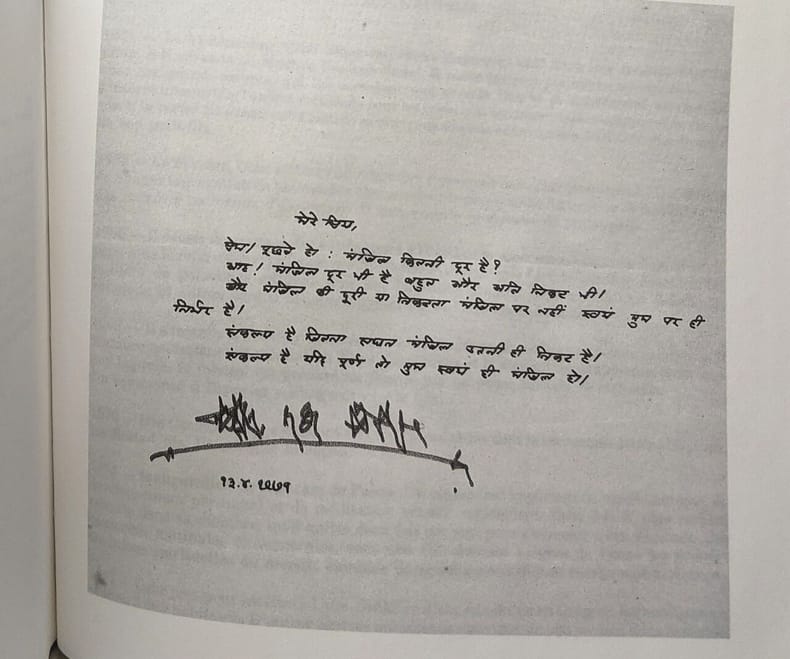 मेरे प्रिय,
प्रेम। पूछते हो : मंजिल कितनी दूर है?
आह! मंजिल दूर भी है बहुत और अति निकट भी।
और मंजिल की दूरी या निकटता मंजिल पर नहीं स्वयं तुम पर ही
निर्भर है।
संकल्प है जितना सघन मंजिल उतनी ही निकट है।
संकल्प है यदि पूर्ण तो तुम स्वयं ही मंजिल हो।
१३.४.१९७१